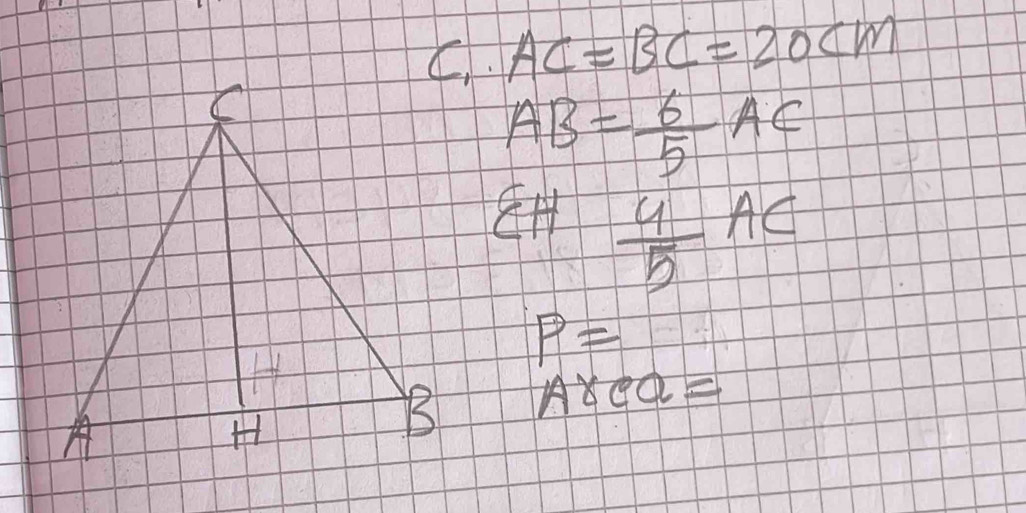 C. AC = BC = 20 CM
AB = 6/5 AC
CH 4/5 AC
P =
Area =
C
H
A
H
B